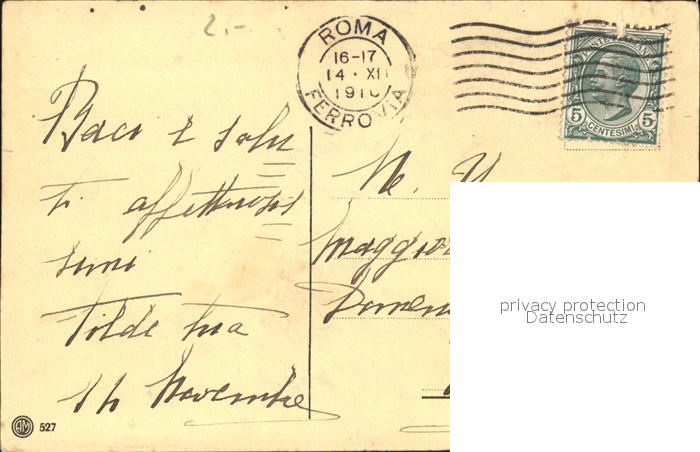 2.-
ROMA
16-17
14 · XII
191
FERROVIA
POSTE ITALIANE
5 5
CENTESIMI
Baci e salu
ti affettuosis
simi
Tilde tua
14 Novembre
Maggio
Domen
privacy protection
Datenschutz
AM 527